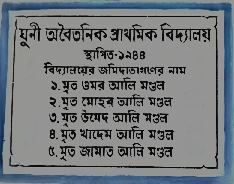 ঘুনী অবৈতনিক প্রাথমিক বিদ্যালয়
স্থাপিত-১৯৪৪
বিদ্যালয়ের জমিদাতাগণের নাম
১. মৃত ওমর আলি মণ্ডল
২. মৃত মোহর আলি মণ্ডল
৩. মৃত উমেদ আলি মণ্ডল
৪. মৃত খাদেম আলি মণ্ডল
৫. মৃত জামাত আলি মণ্ডল